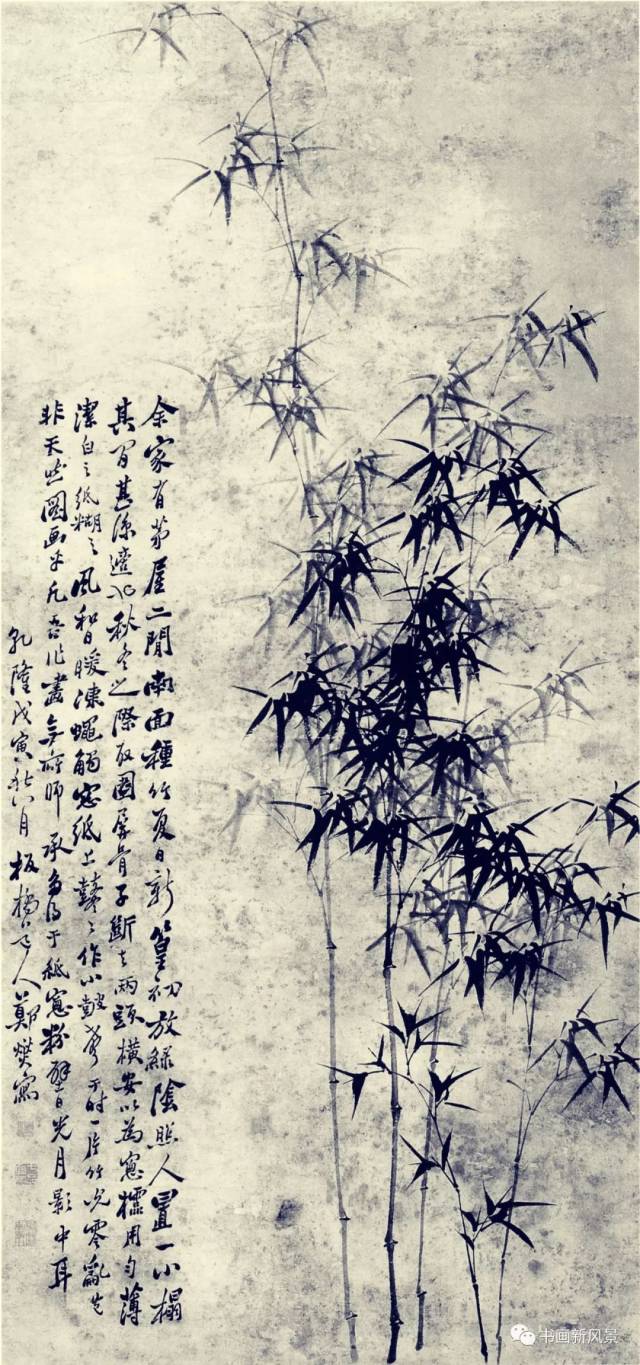 余家有茅屋二間南面種竹夏日新篁初放綠陰照人置一小榻
其間甚涼適也秋冬之際取圍屏骨子斷去兩頭橫安以為窗櫺用勻薄
潔白之紙糊之風和日暖凍蠅觸窗紙上鼕鼕作小鼓聲于時一片竹零亂豈
非天然圖畫乎凡吾作畫無所師承多得于紙窗粉壁日光月影中耳
乾隆戊寅秋八月板橋道人鄭燮寫
书画新风景